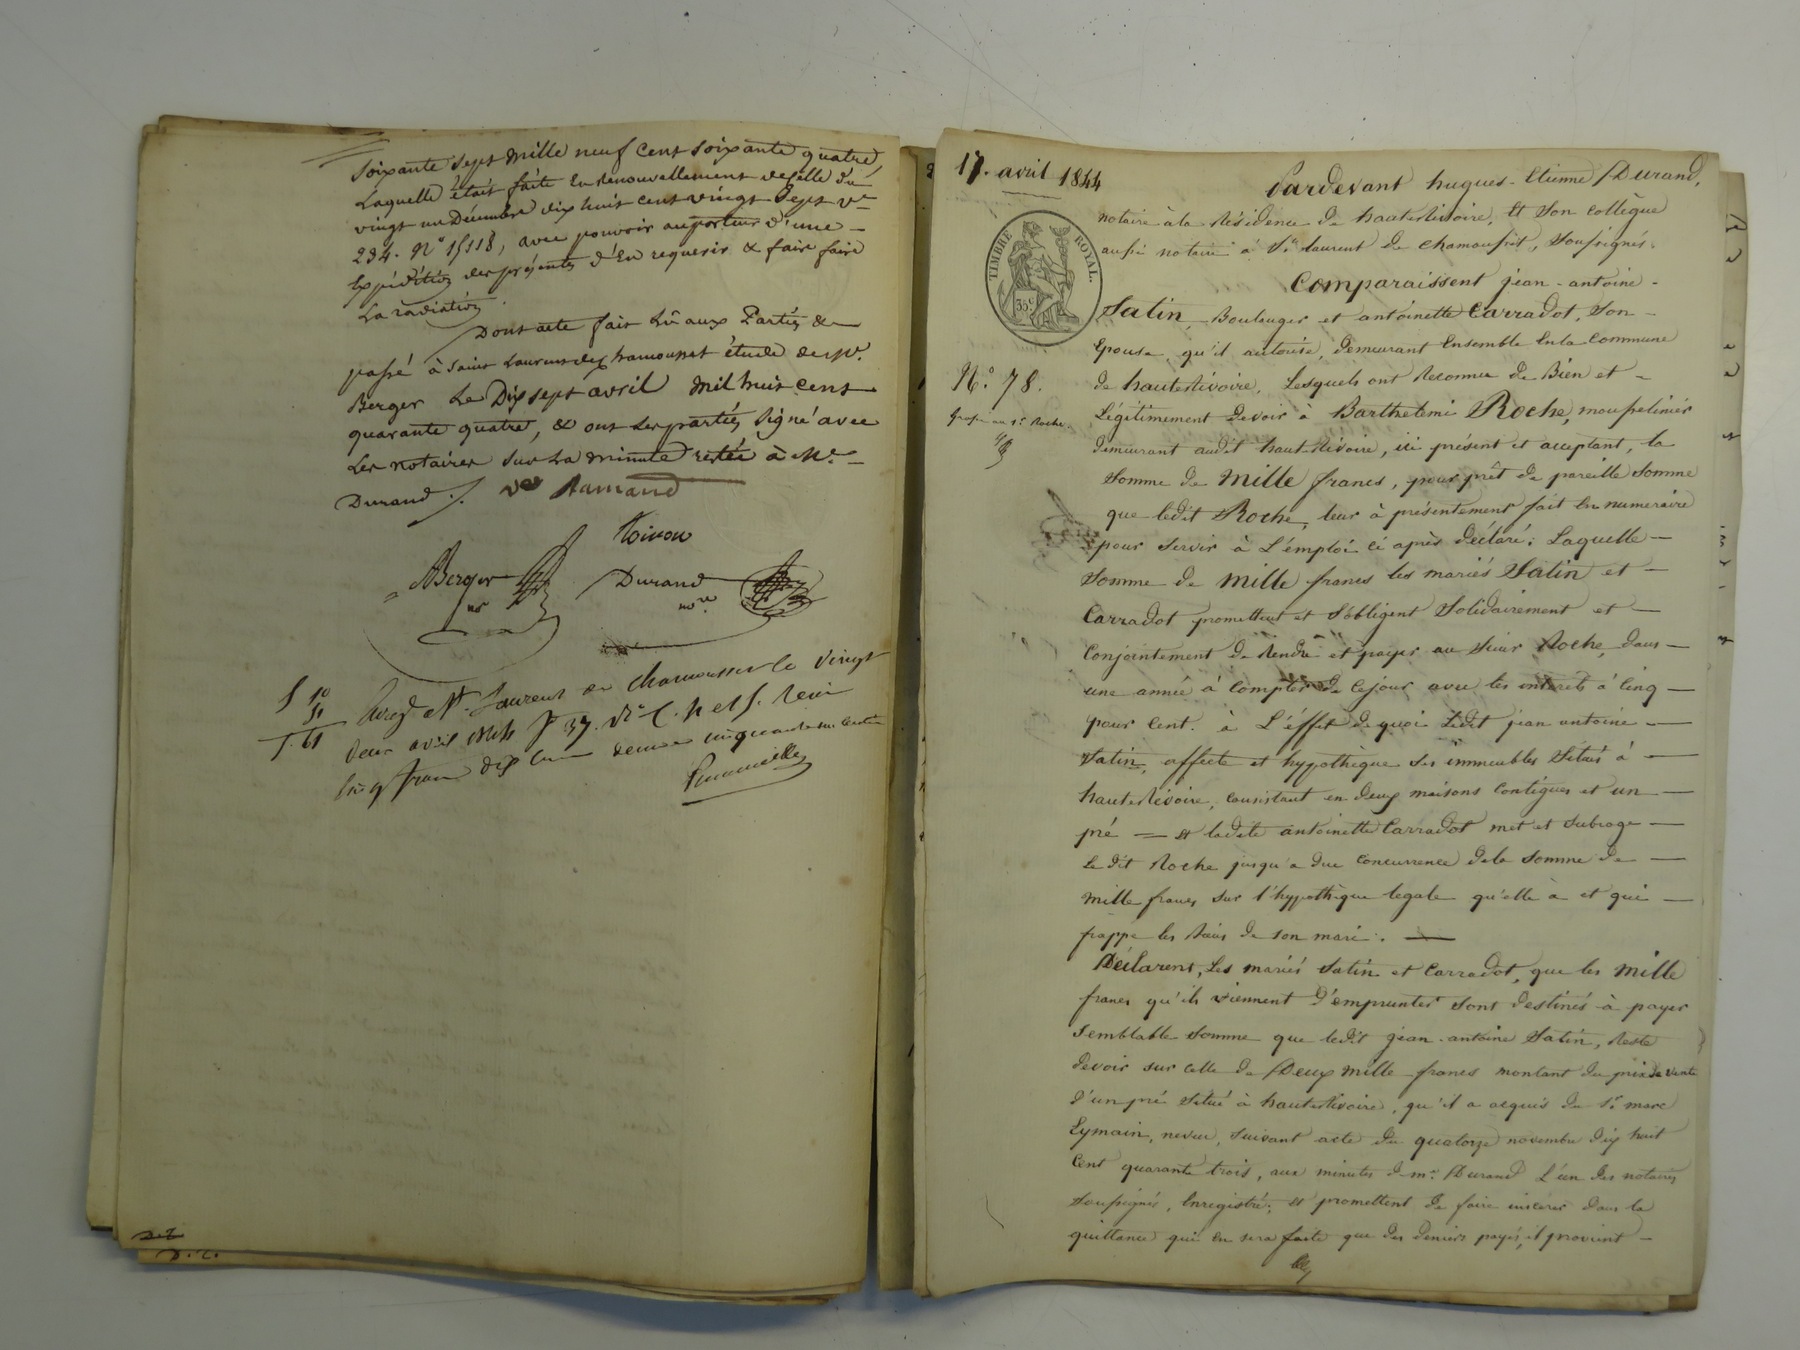 Soixante Sept mille neuf cent soixante quatre,
Laquelle était faite En Renouvellement de celle du
vingt un Décembre dix huit cent vingt Sept vol.
234. N° 15118, avec pouvoir au porteur d'une
Expédition des présentes d'En requerir & faire faire
La radiation.
Dont acte fait Lû aux Parties &
passé à Saint Laurent de Chamousset étude de Me.
Berger Le Dix sept avril mil huit cent
quarante quatre, & ont les parties Signé avec
Les notaires Sur La minute restée à Me
Durand ./.
Berger
nre
Durand
nre
S 10
51
5.61
Enreg. à St. Laurent de Chamousset le vingt
deux avril 1844 fo 37. Ro C. 4 et 5. Reçu
Cinq francs dix cmes decime cinquante un centimes
17. avril 1844
Pardevant hugues-Etienne Durand,
notaire à la Résidence de haute Rivoire, Et Son collègue
aussi notaire à St. laurent de chamousset, Soussignés.
TIMBRE ROYAL.
35c
Comparaissent jean-antoine
Satin, Boulanger et antoinette Carradot, Son
Epouse, qu'il autorise, demeurant Ensemble En la Commune
N.° 78.
de haute Rivoire, Lesquels ont Reconnu de Bien et
Grosse au Sr. Roche.
Légitimement devoir à Barthelemi Roche, mousselinier
demeurant audit haute Rivoire, ici présent et acceptant, la
Somme de Mille francs, pour prêt de pareille Somme
que ledit Roche, leur à présentement fait En numeraire
pour Servir à L'emploi ci après déclaré; Laquelle
Somme de Mille francs les mariés Satin et
Carradot promettent et S'obligent Solidairement et
Conjointement de Rendre et payer au Sieur Roche, dans
une année à Compter de Cejour avec les interets à Cinq
pour Cent. à L'éffet de quoi Ledit jean antoine
Satin, affecte et hypothèque Ses immeubles Situés à
haute Rivoire, Consistant en deux maisons Contigues et un
pré = Et ladite antoinette Carradot met et Subroge
Le dit Roche jusqu'a due Concurrence dela Somme de
Mille francs Sur l'hypothèque legale qu'elle à et qui
frappe les Biens de Son mari.
Déclarent, Les mariés Satin et Carradot, que les Mille
francs qu'ils viennent D'emprunter Sont destinés à payer
Semblable Somme que ledit jean-antoine Satin, Reste
devoir sur celle de Deux mille francs montant du prix de vente
d'un pré Situé à haute Rivoire, qu'il a acquis du Sr. marc
Eymain, neveu, Suivant acte du quatorze novembre dix huit
Cent quarante trois, aux minutes de me. Durand L'un des notaires
Soussignés, Enregistré; Et promettent de faire insérer dans la
quittance qui En sera faite que les deniers payés, il provient